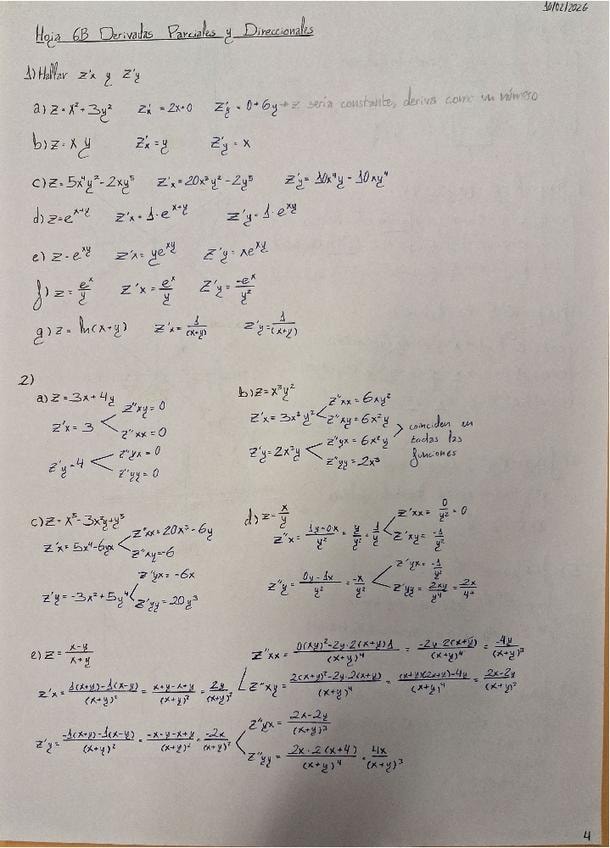 10/02/2026
Hoja 6B Derivadas Parciales y Direccionales
1) Hallar z'x y z'y
a) z = x² + 3y²   z'x = 2x+0   z'y = 0+6y → z sería constante, deriva como un número
b) z = x y   z'x = y   z'y = x
c) z = 5x⁴y² - 2xy⁵   z'x = 20x³y² - 2y⁵   z'y = 10x⁴y - 10xy⁴
d) z = e^(x+y)   z'x = 1·e^(x+y)   z'y = 1·e^(xy)
e) z = e^(xy)   z'x = ye^(xy)   z'y = xe^(xy)
f) z = e^x/y   z'x = e^x/y   z'y = -e^x/y²
g) z = ln(x+y)   z'x = 1/(x+y)   z'y = 1/(x+y)
2)
a) z = 3x + 4y
z'x = 3   z''xy = 0   z''xx = 0
z'y = 4   z''yx = 0   z''yy = 0
b) z = x³y²
z'x = 3x²y²   z''xx = 6xy²   z''xy = 6x²y
z'y = 2x³y   z''yx = 6x²y   z''yy = 2x³
coinciden en todas las funciones
c) z = x⁵ - 3x²y + y⁵
z'x = 5x⁴ - 6yx   z''xx = 20x³ - 6y   z''xy = -6
z'y = -3x² + 5y⁴   z''yx = -6x   z''yy = 20y³
d) z = x/y
z''x = (1y - 0x)/y² = y/y² = 1/y   z'xx = 0/y² = 0   z'xy = -1/y²
z''y = (0y - 1x)/y² = -x/y²   z'yx = -1/y²   z'yy = 2xy/y⁴ = 2x/y³
e) z = (x-y)/(x+y)
z'x = (1(x+y) - 1(x-y))/(x+y)² = (x+y-x+y)/(x+y)² = 2y/(x+y)²
z''xx = (0(xy)² - 2y·2(x+y)1)/(x+y)⁴ = (-2y·2(x+y))/(x+y)⁴ = -4y/(x+y)³
z''xy = (2(x+y)² - 2y·2(x+y))/(x+y)⁴ = ((x+y)(2x+y) - 4y)/(x+y)⁴ = (2x-2y)/(x+y)³
z'y = (-1(x+y) - 1(x-y))/(x+y)² = (-x-y-x+y)/(x+y)² = -2x/(x+y)²
z''yx = (2x-2y)/(x+y)³
z''yy = (2x·2(x+y))/(x+y)⁴ = 4x/(x+y)³
4